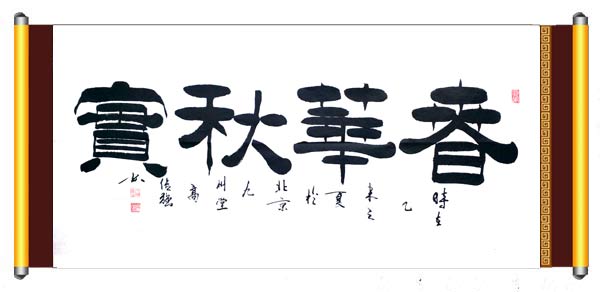 春華秋實
時在乙未之夏於北京九州堂高强书